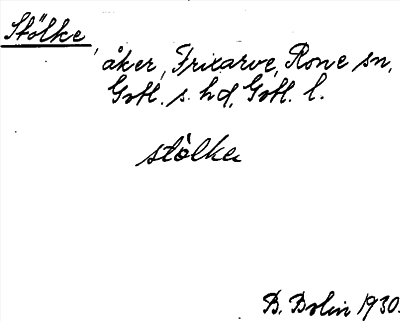 Stölke,
åker, Frixarve, Rone sn,
Gotl. s. hd, Gotl. l.
stòlkα
B. Bolin 1930.